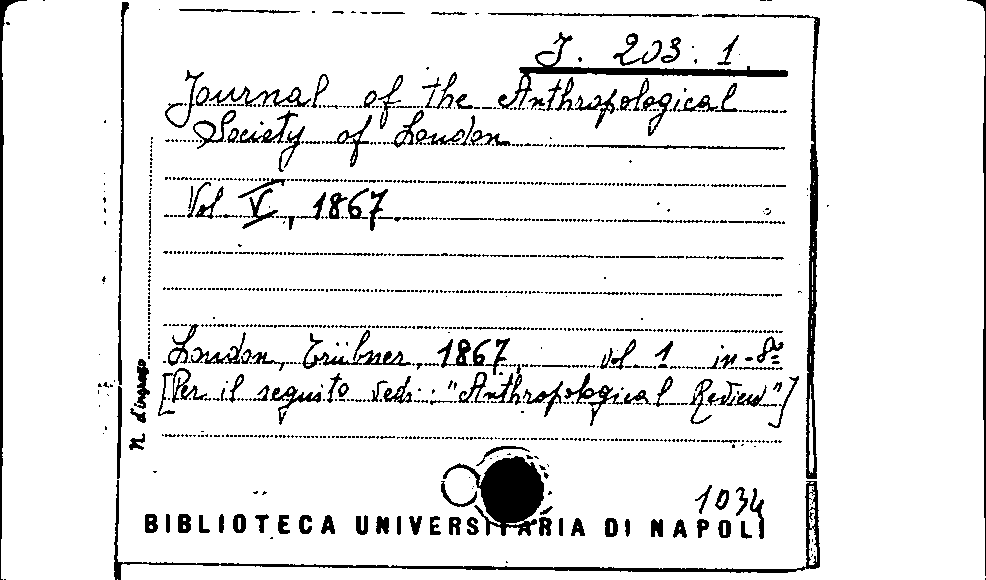 J. 203. 1.
Journal of the Anthropological
Society of London
Vol. V, 1867.
London, Trübner, 1867, vol. 1 in-8º
[Per il seguito vedi: "Anthropological Review"]
N. d'ingresso
1034
BIBLIOTECA UNIVERSITARIA DI NAPOLI